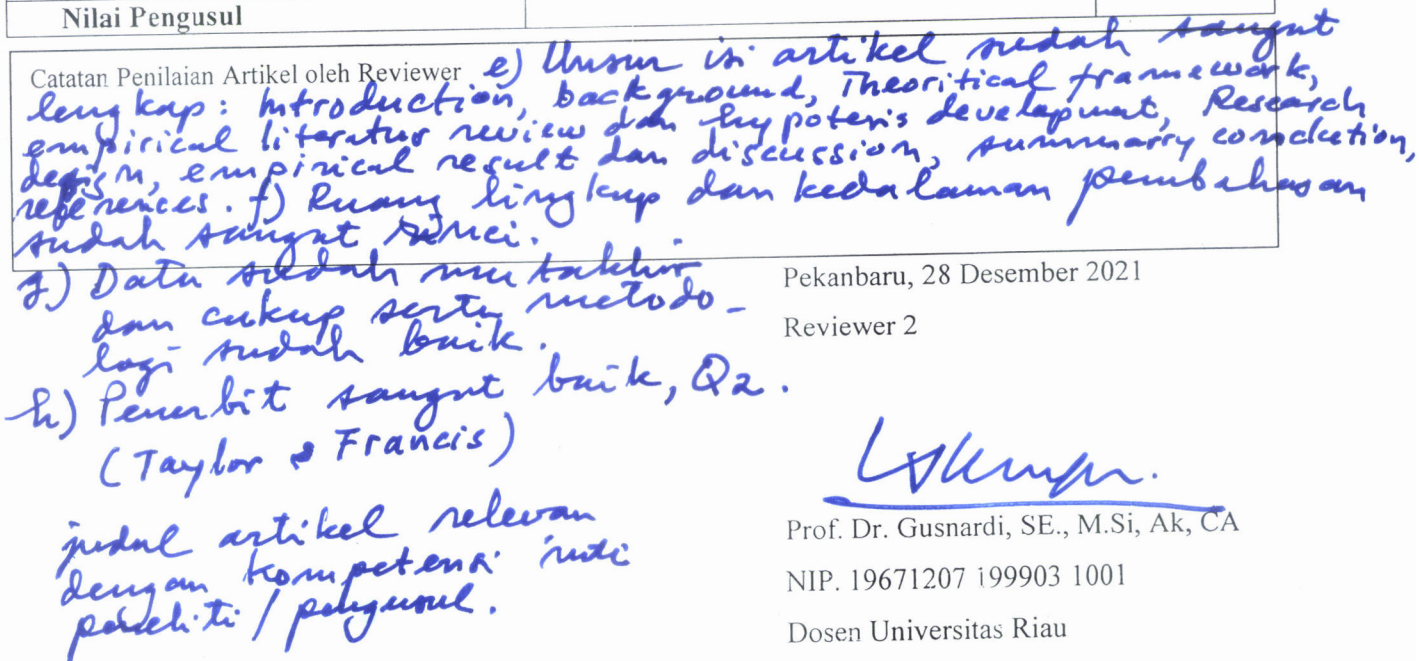 Nilai Pengusul
Catatan Penilaian Artikel oleh Reviewer e) Unsur isi artikel sudah sangat
lengkap: Introduction, background, Theoritical framework,
empirical literatur review dan hypotesis development, Research
design, empirical result dan discussion, summarry conclution,
references. f) Ruang lingkup dan kedalaman pembahasan
sudah sangat rinci.
g) Data sudah mutakhir
dan cukup serta metodo-
logi sudah baik.
h) Penerbit sangat baik, Q2.
(Taylor & Francis)
judul artikel relevan
dengan kompetensi inti
peneliti / pengusul.
Pekanbaru, 28 Desember 2021
Reviewer 2
Prof. Dr. Gusnardi, SE., M.Si, Ak, CA
NIP. 19671207 199903 1001
Dosen Universitas Riau